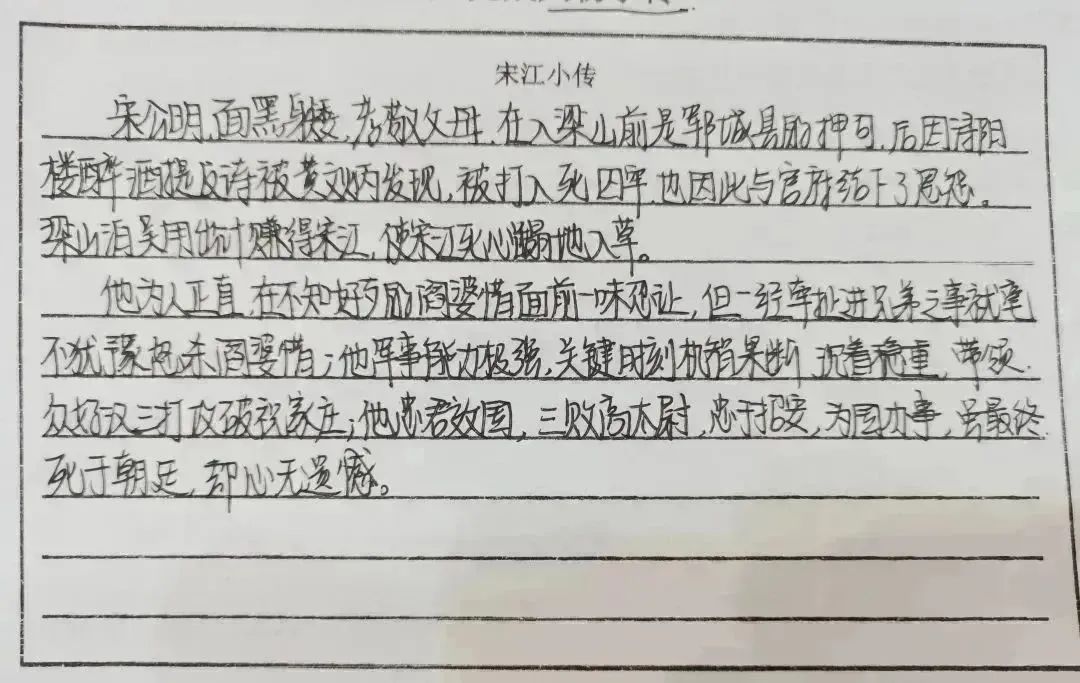 宋江小传
宋公明,面黑身矮,孝敬父母,在入梁山前是郓城县的押司,后因浔阳
楼醉酒题反诗被黄文炳发现,被打入死囚牢,也因此与官府结下了恩怨。
梁山泊吴用出计赚得宋江,使宋江死心塌地入草。
他为人正直,在不知好歹的阎婆惜面前一味忍让,但一经牵扯进兄弟之事就毫
不犹豫怒杀阎婆惜;他军事能力极强,关键时刻机智果断,沉着稳重,带领
众好汉三打攻破祝家庄;他忠君效国,三败高太尉,忠于招安,为国办事,虽最终
死于朝廷,却心无遗憾。